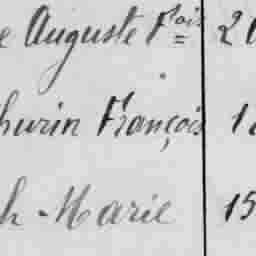 e Auguste Fois 20
hurin François 1
h Marie 15